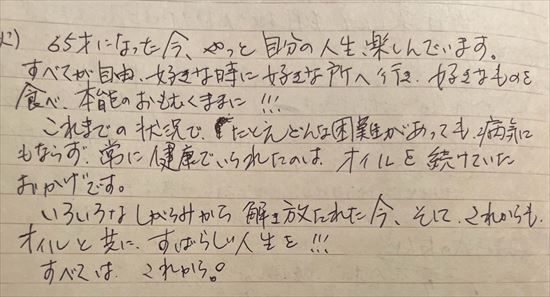 65才になった今、やっと自分の人生、楽しんでいます。
すべてが自由、好きな時に好きな所へ行き、好きなものを
食べ、本能のおもむくままに!!!
これまでの状況で、たとえどんな困難があっても、病気に
もならず、常に健康でいられたのは、オイルを続けていた
おかげです。
いろいろなしがらみから解き放たれた今、そして、これからも、
オイルと共に、すばらしい人生を!!!
すべては、これから。